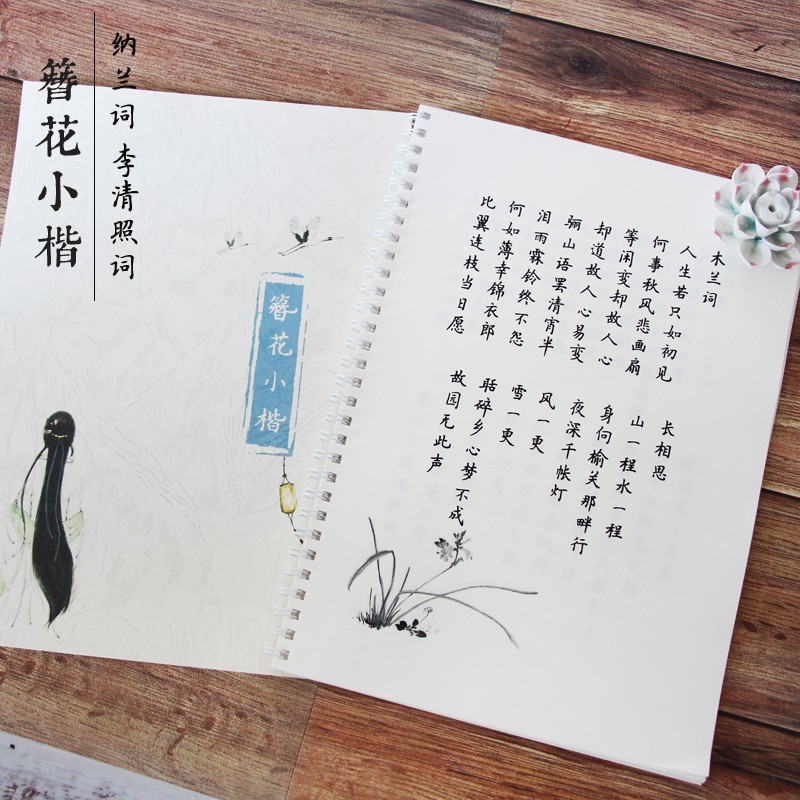 簪花小楷
纳兰词 李清照词
簪花小楷
木兰词
人生若只如初见
何事秋风悲画扇
等闲变却故人心
却道故人心易变
骊山语罢清宵半
泪雨霖铃终不怨
何如薄幸锦衣郎
比翼连枝当日愿
长相思
山一程水一程
身向榆关那畔行
夜深千帐灯
风一更
雪一更
聒碎乡心梦不成
故园无此声